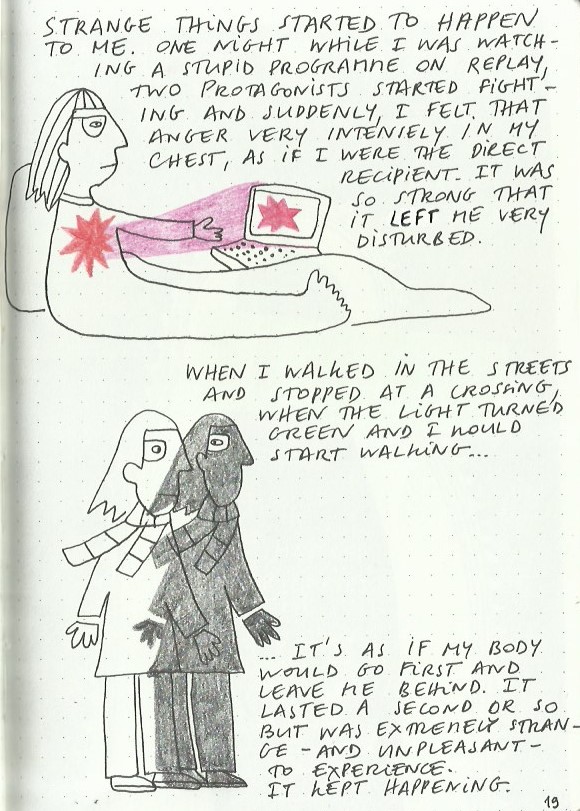 STRANGE THINGS STARTED TO HAPPEN
TO ME. ONE NIGHT WHILE I WAS WATCH-
ING A STUPID PROGRAMME ON REPLAY,
TWO PROTAGONISTS STARTED FIGHT-
ING AND SUDDENLY, I FELT THAT
ANGER VERY INTENSELY IN MY
CHEST, AS IF I WERE THE DIRECT
RECIPIENT. IT WAS
SO STRONG THAT
IT LEFT ME VERY
DISTURBED.
WHEN I WALKED IN THE STREETS
AND STOPPED AT A CROSSING,
WHEN THE LIGHT TURNED
GREEN AND I WOULD
START WALKING...
... IT'S AS IF MY BODY
WOULD GO FIRST AND
LEAVE ME BEHIND. IT
LASTED A SECOND OR SO
BUT WAS EXTREMELY STRAN-
GE - AND UNPLEASANT -
TO EXPERIENCE.
IT KEPT HAPPENING.
19